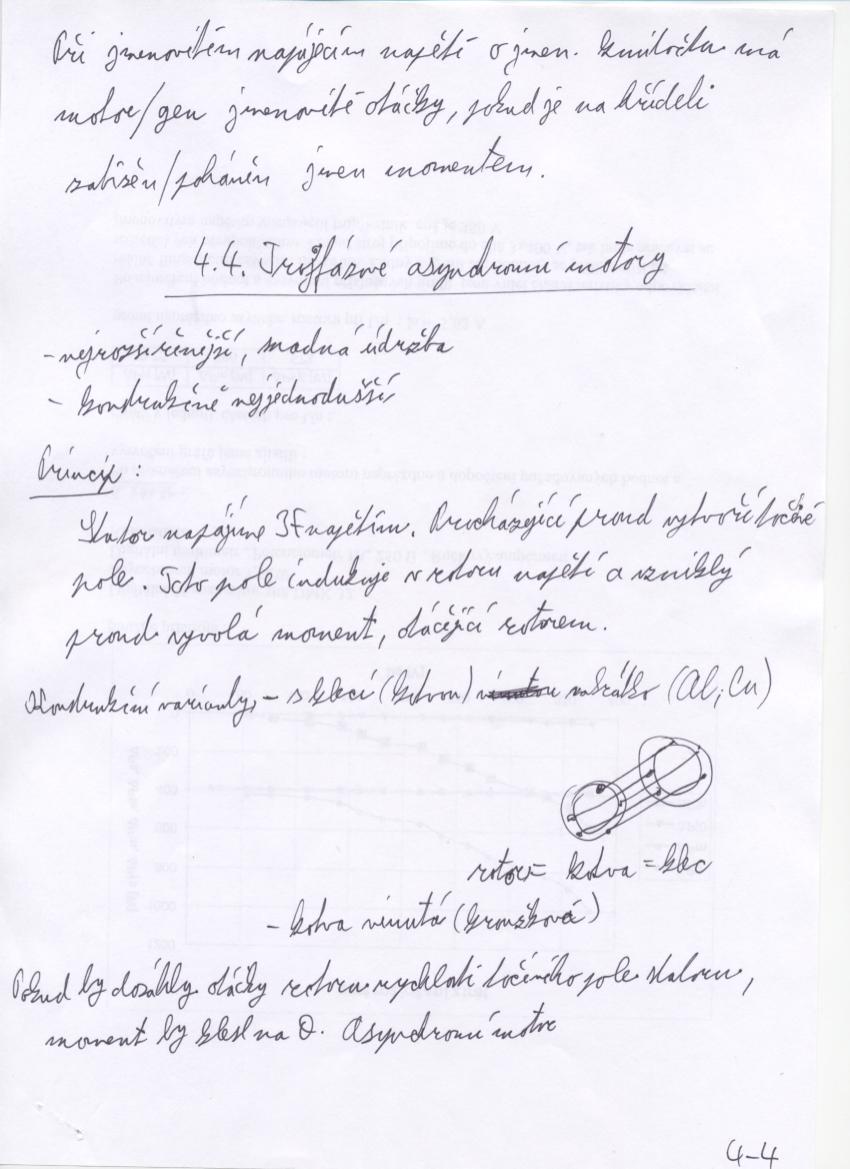 Při jmenovitém napájecím napětí o jmen. kmitočtu má
motor/gen jmenovité otáčky, pokud je na hřídeli
zatížen/poháněn jmen momentem.
4.4. Trojfázové asynchronní motory
- nejrozšířenější, snadná údržba
- konstrukčně nejjednodušší
Princip:
Stator napájíme 3F napětím. Procházející proud vytvoří točivé
pole. Toto pole indukuje v rotoru napětí a vzniklý
proud vyvolá moment, otáčející rotorem.
Konstrukční varianty, - s klecí (kotvou) nakrátko (Al, Cu)
rotor = kotva = klec
- kotva vinutá (kroužková)
Pokud by dosáhly otáčky rotoru rychlosti točivého pole statoru,
moment by klesl na 0. Asynchronní motor
4-4